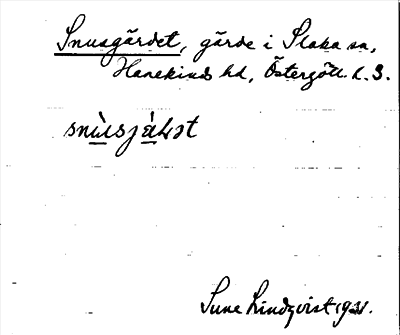 Snusgärdet, gärde i Slaka sn,
Hanekinds hd, Östergötl. l. S.
Sune Lindqvist